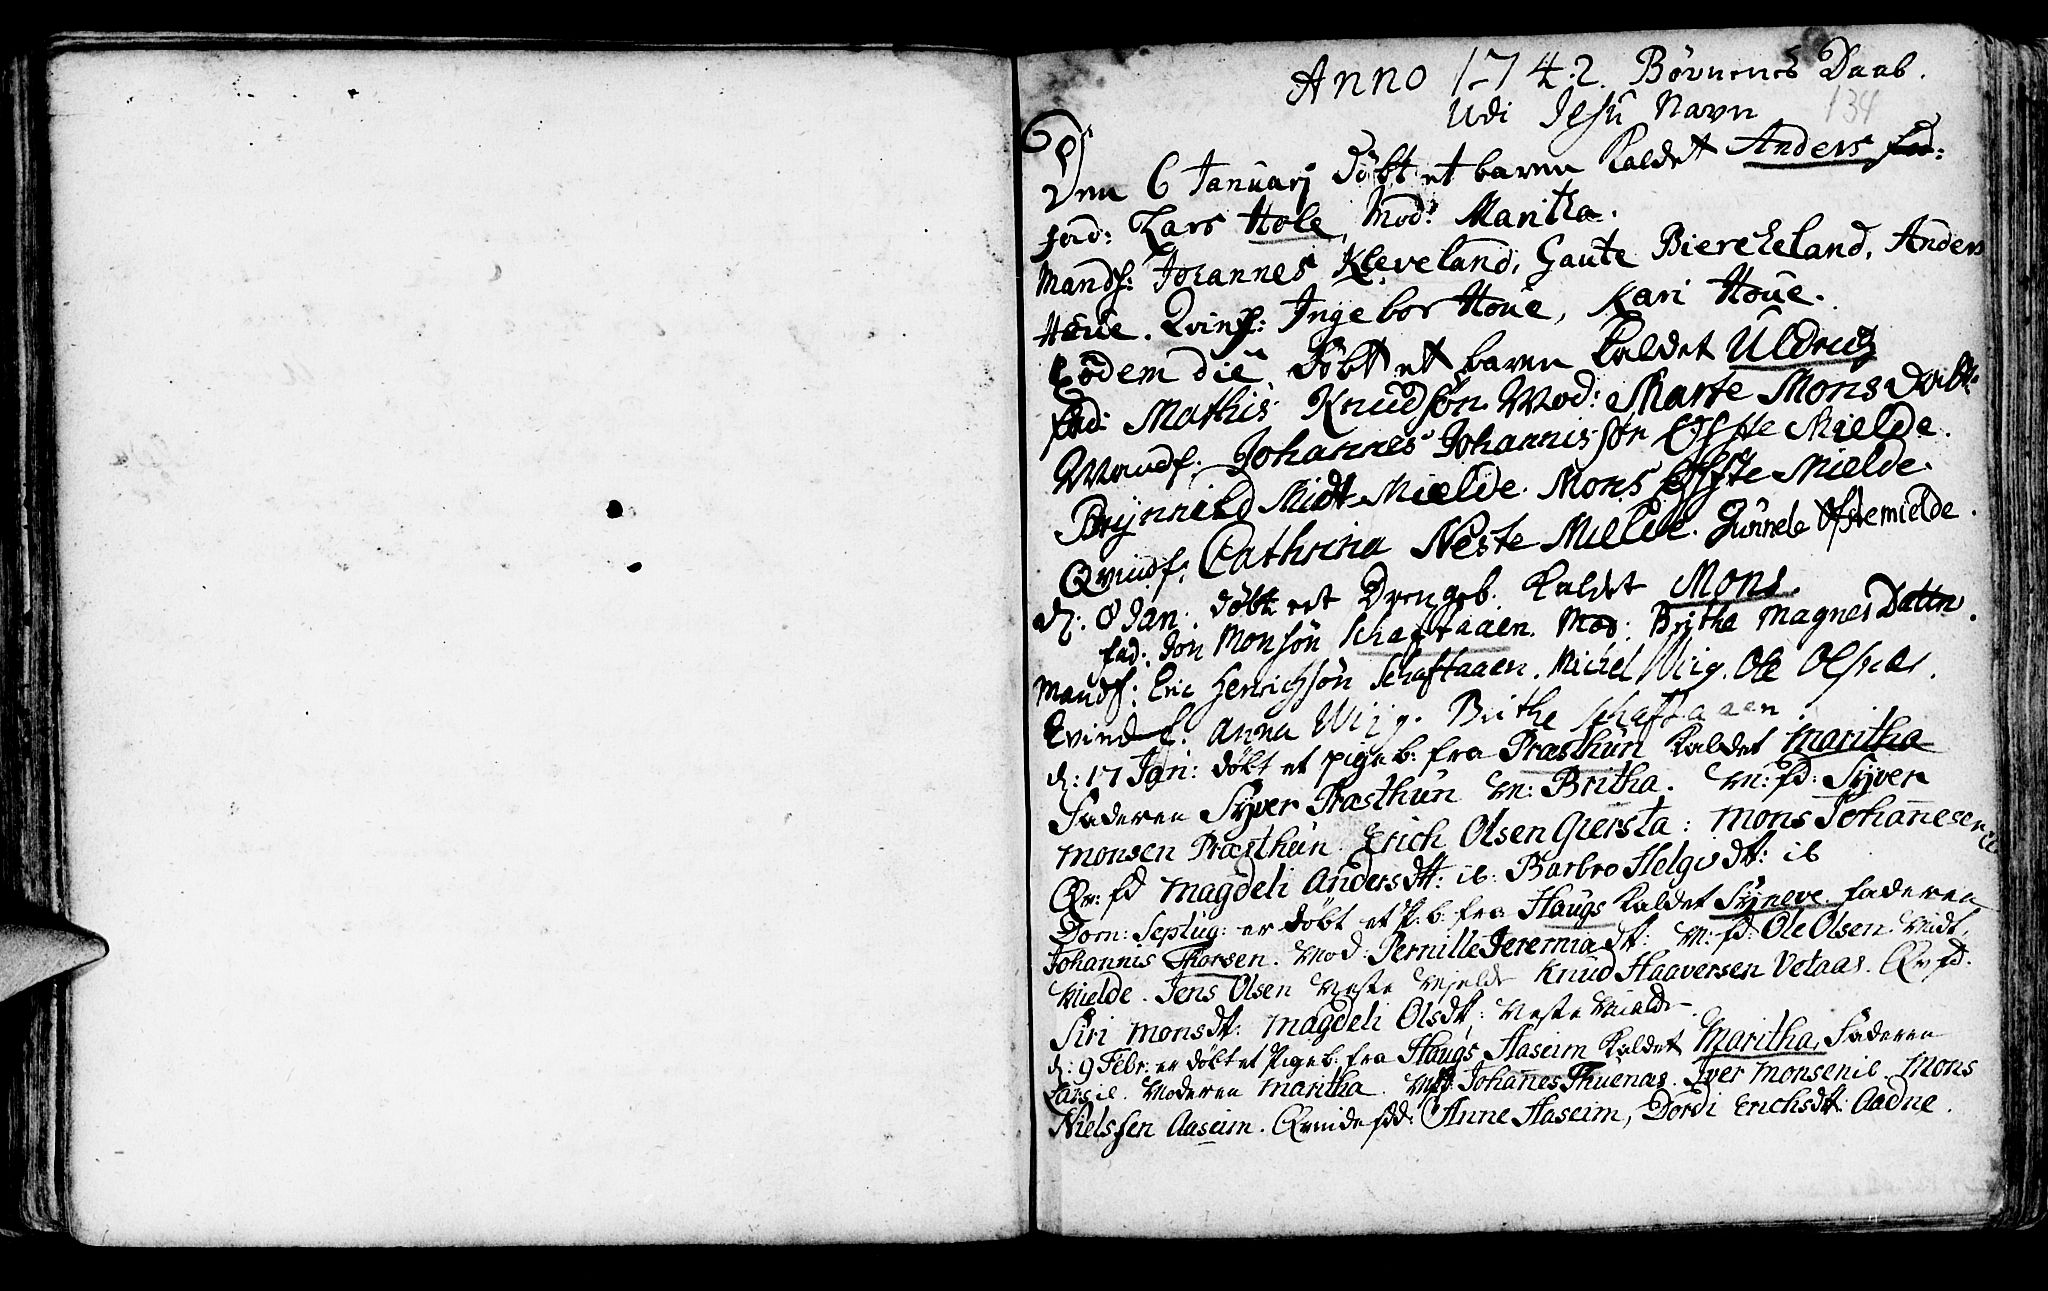 Anno 1742. Børnenes Daab.
Udi Jesu Navn 134
Den 6 Januarj döbt et baren kaldet Anders fad:
fad: Lars Hole, Mod: Maritha.
Mandf: Johannes Kleveland, Gaute Bierckeland, Anders
Houe. Qvinf: Ingebor Houe, Kari Houe.
Eodem die döbt et baren kaldet Uldrich
fad: Mathis Knudsön Mod: Marte Mons Datt:
Mandf. Johannes Johannissön Öfste Mielde.
Brynnild Midt Mielde. Mons Öfste Mielde.
Qvindf: Cathrina Neste Mielde. Gunnele Øfstemielde.
d: 8 Jan: döbt eet Drengeb. kaldet Mons.
fad: Jon Monsön Schaftaaen. Mod: Brithe Magnes Datter.
Mandf: Eric Henrichsön Schaftaaen. Michel Wiig. Ole Olsnes.
Qvindf: Anna Wiig. Brithe Schaftaaen.
d: 17 Jan: döbt et pigeb: fra Præsthun kaldet Maritha
Faderen Syver Præsthun M: Britha. M: fd: Syver
Monsen Præsthun Erich Olsen Giersta: Mons Johanesen
Qv: fd Magdeli Andersdtt: ib: Barbro Helgisdt: ib
Dom: Septug: er döbt et P: b: fra Haugs kaldet Syneve. faderen
Johannis Thorsen. Mod: Pernille Jeremiadt: M: fd: Ole Olsen Midt,
Mielde. Jens Olsen Neste Mjelde Knud Haaversen Vetaas. Qv fd.
Siri Monsdt: Magdeli Olsdt: Neste Mielde
d: 9 Febr: er döbt et Pigeb: fra Haugs Haseim kaldet Maritha, Faderen
Lars ib. Moderen Maritha. Mfd: Johanes Thuenas. Iver Monsen ib. Mons
Nielssen Aaseim. Qvindefdd: Anne Haseim, Dordi Erichsdt: Aadne.